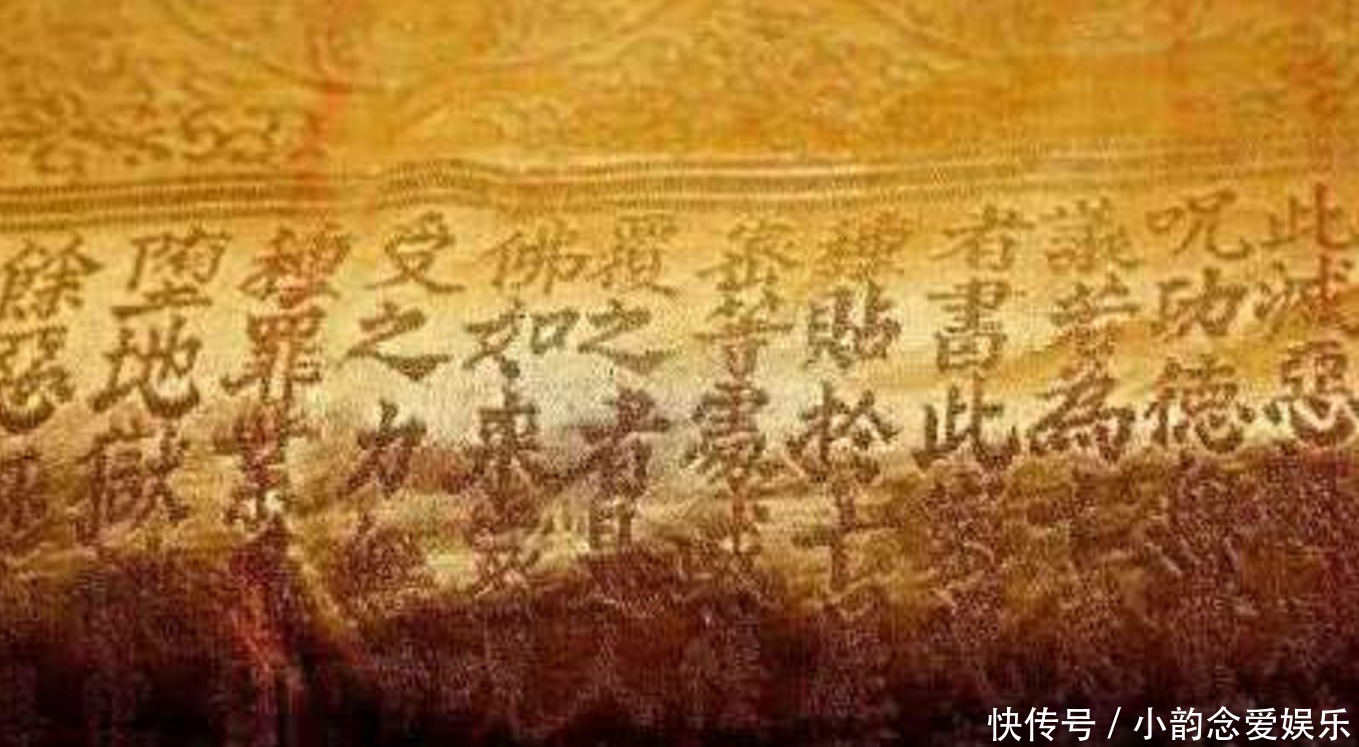 此滅惡
呪功德
議若為
者書此
貼於十
等處
覆之者
佛如來及
受之力
種罪業
墮地獄
餘惡
快传号 / 小韵念爱娱乐